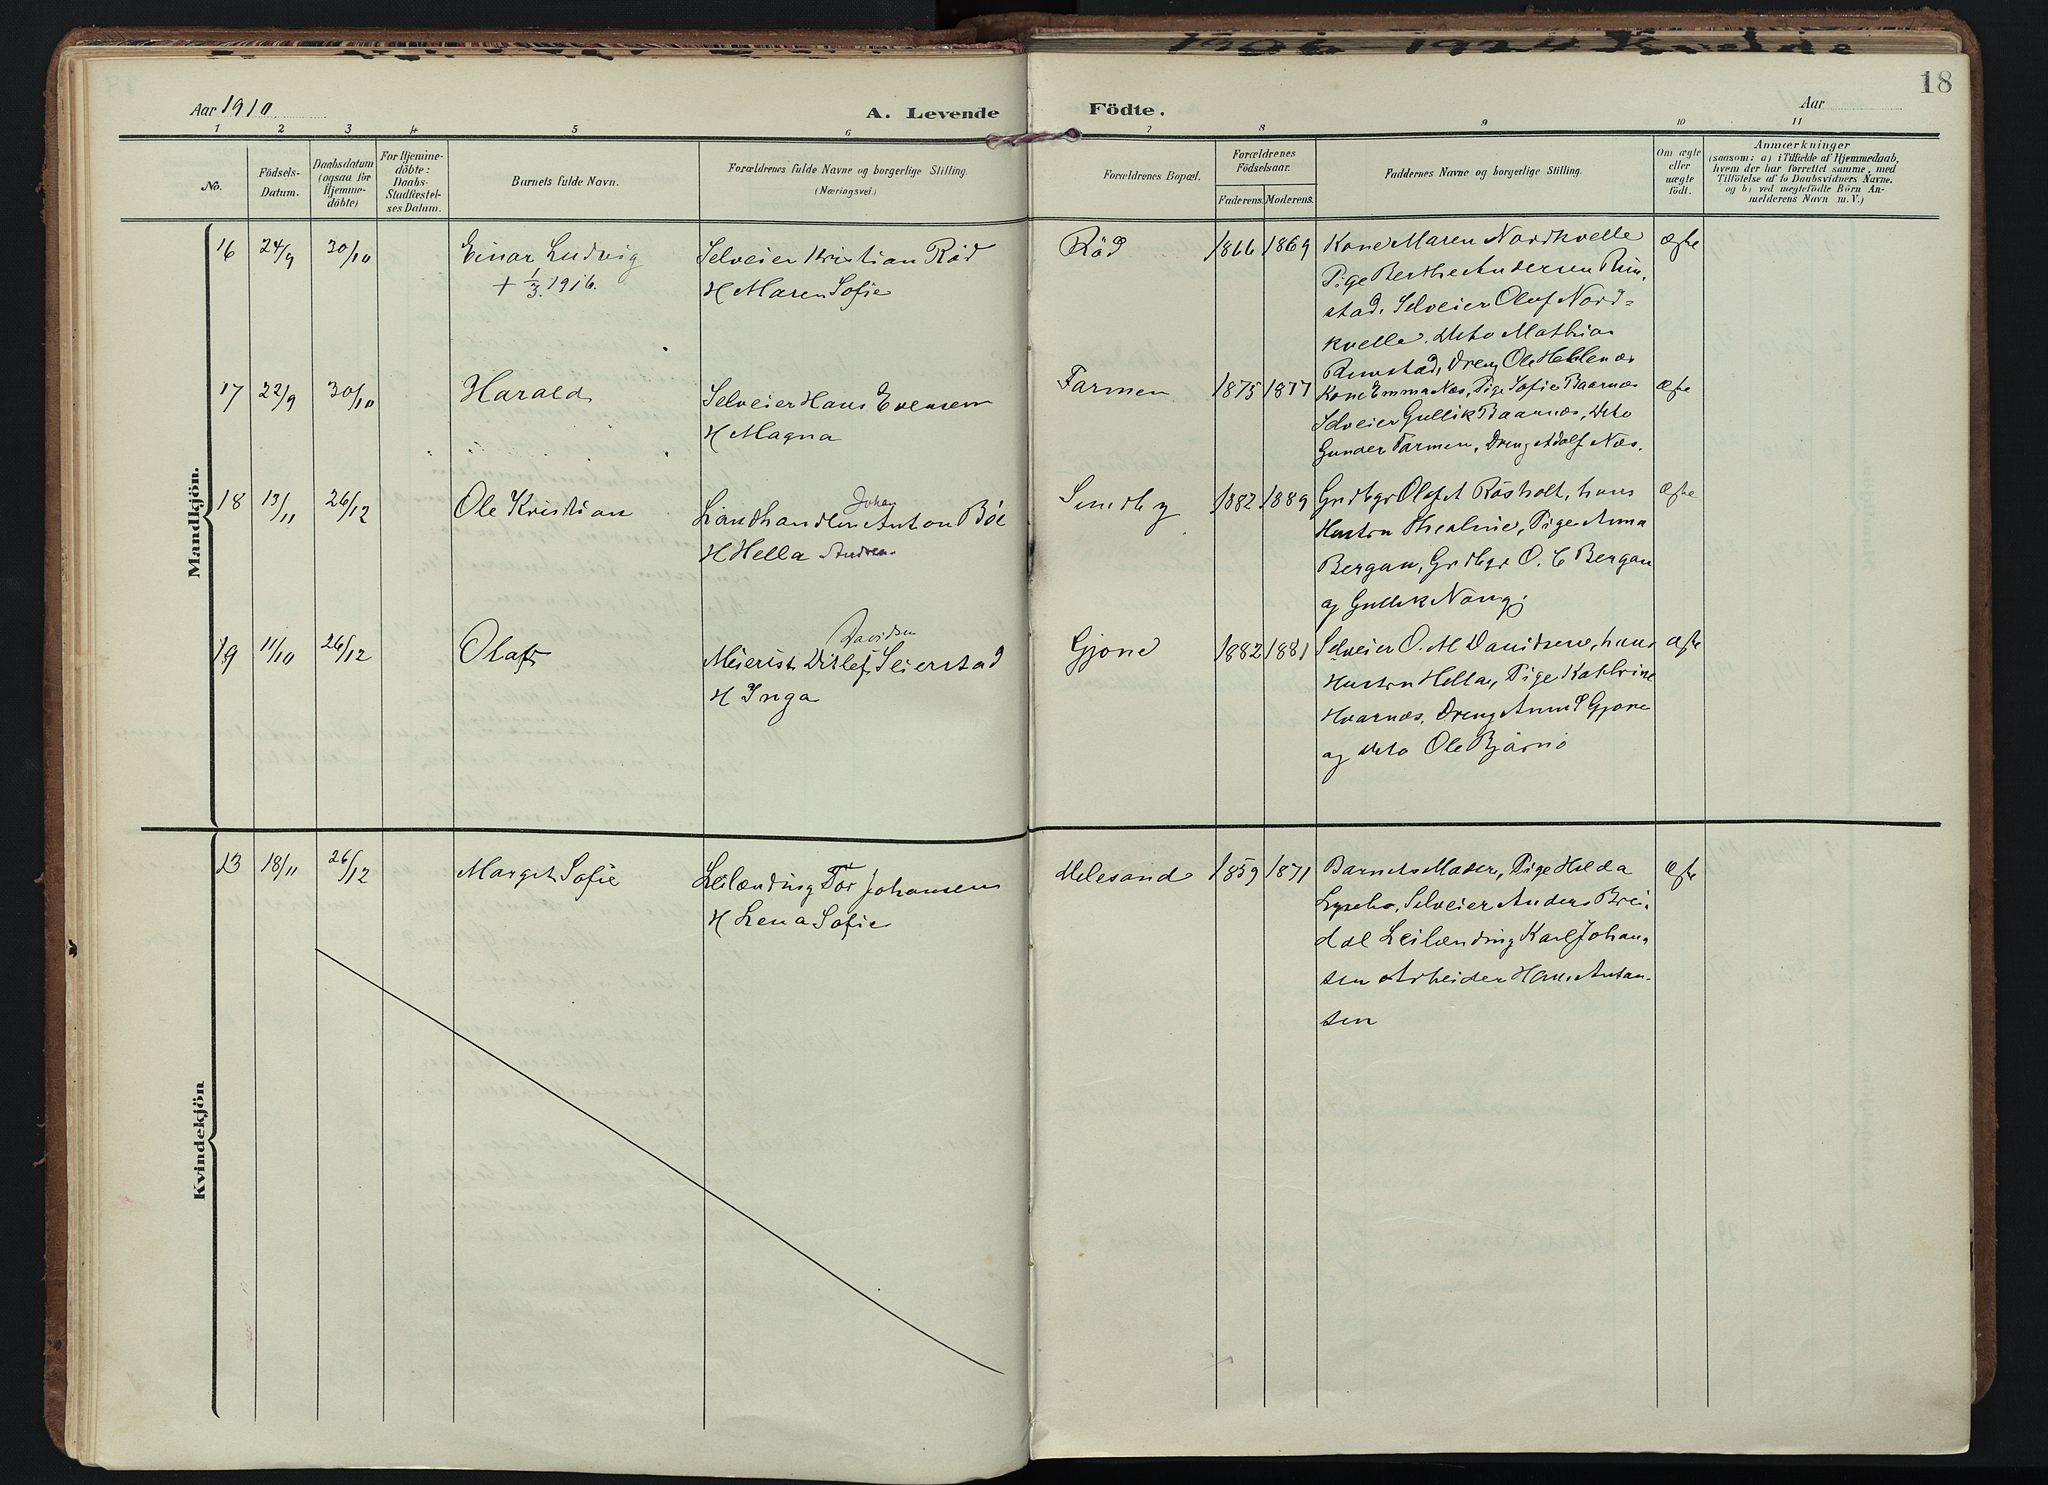 1906 1924 Kvelde
18
Aar 1910
A. Levende Födte.
Aar
1 2 3 4 5 6 7 8 9 10 11
No.
Födsels-
Datum.
Daabsdatum
(ogsaa for
Hjemme-
döbte)
For Hjemme-
döbte:
Daabs-
Stadfestel-
ses Datum.
Barnets fulde Navn.
Forældrenes fulde Navne og borgerlige Stilling.
(Næringsvei)
Forældrenes Bopæl.
Forældrenes
Födselsaar.
Faderens. Moderens.
Faddernes Navne og borgerlige Stilling.
Om ægte
eller
uægte
födt.
Anmærkninger
(saasom: a) i Tilfælde af Hjemmedaab,
hvem der har forrettet samme, med
Tilföielse af to Daabsvidners Navne.
og b) ved uægtefödte Börn An-
melderens Navn m. V.)
Mandkjön.
16 24/9 30/10 Einar Ludvig
+ 1/3. 1916.
Selveier Kristian Röd
H Maren Sofie
Röd 1866 1869
Kone Maren Nordkvelle
Pige Berthe Andersen Rim-
stad. Selveier Olaf Nord-
kvelle. Dito Mathias
Rimstad, Dreng Ole Hellenæs
ægte
17 22/9 30/10 Harald
Selveier Hans Evensen
H Magna
Farmen 1875 1877
Kone Emma Næs, Pige Sofie Baarnæs
Selveier Gullik Baarnæs, Dito
Gunder Farmen, Dreng Adolf Næs.
ægte
18 13/11 26/12 Ole Kristian
Johan
Landhandler Anton Böe
H Hella Andrea
Smedby 1882 1889
Grdbgr Olaf A Rösholt, hans
Hustru Thealine, Pige Anna
Bergan, Grdbgr O. C Bergan
og Gullik Noug.
ægte
19 11/10 26/12 Olaf
Davidsen
Meierist Ditlef Seierstad
H Inga
Gjone 1882 1881
Selveier O. M Davidsen, hans
Hustru Hella, Pige Kathrine
Hvarnæs, Dreng Anund Gjone
og Dito Ole Björnö
ægte
Kvindekjön
13 18/11 26/12 Margit Sofie
Leilænding Tor Johansen
H Lena Sofie
Melesand 1859 1871
Barnets Moder, Pige Hilda
Lysebo, Selveier Anders Brei-
dal Leilænding Karl Johan-
sen Arbeider Hans Antan-
sen
ægte